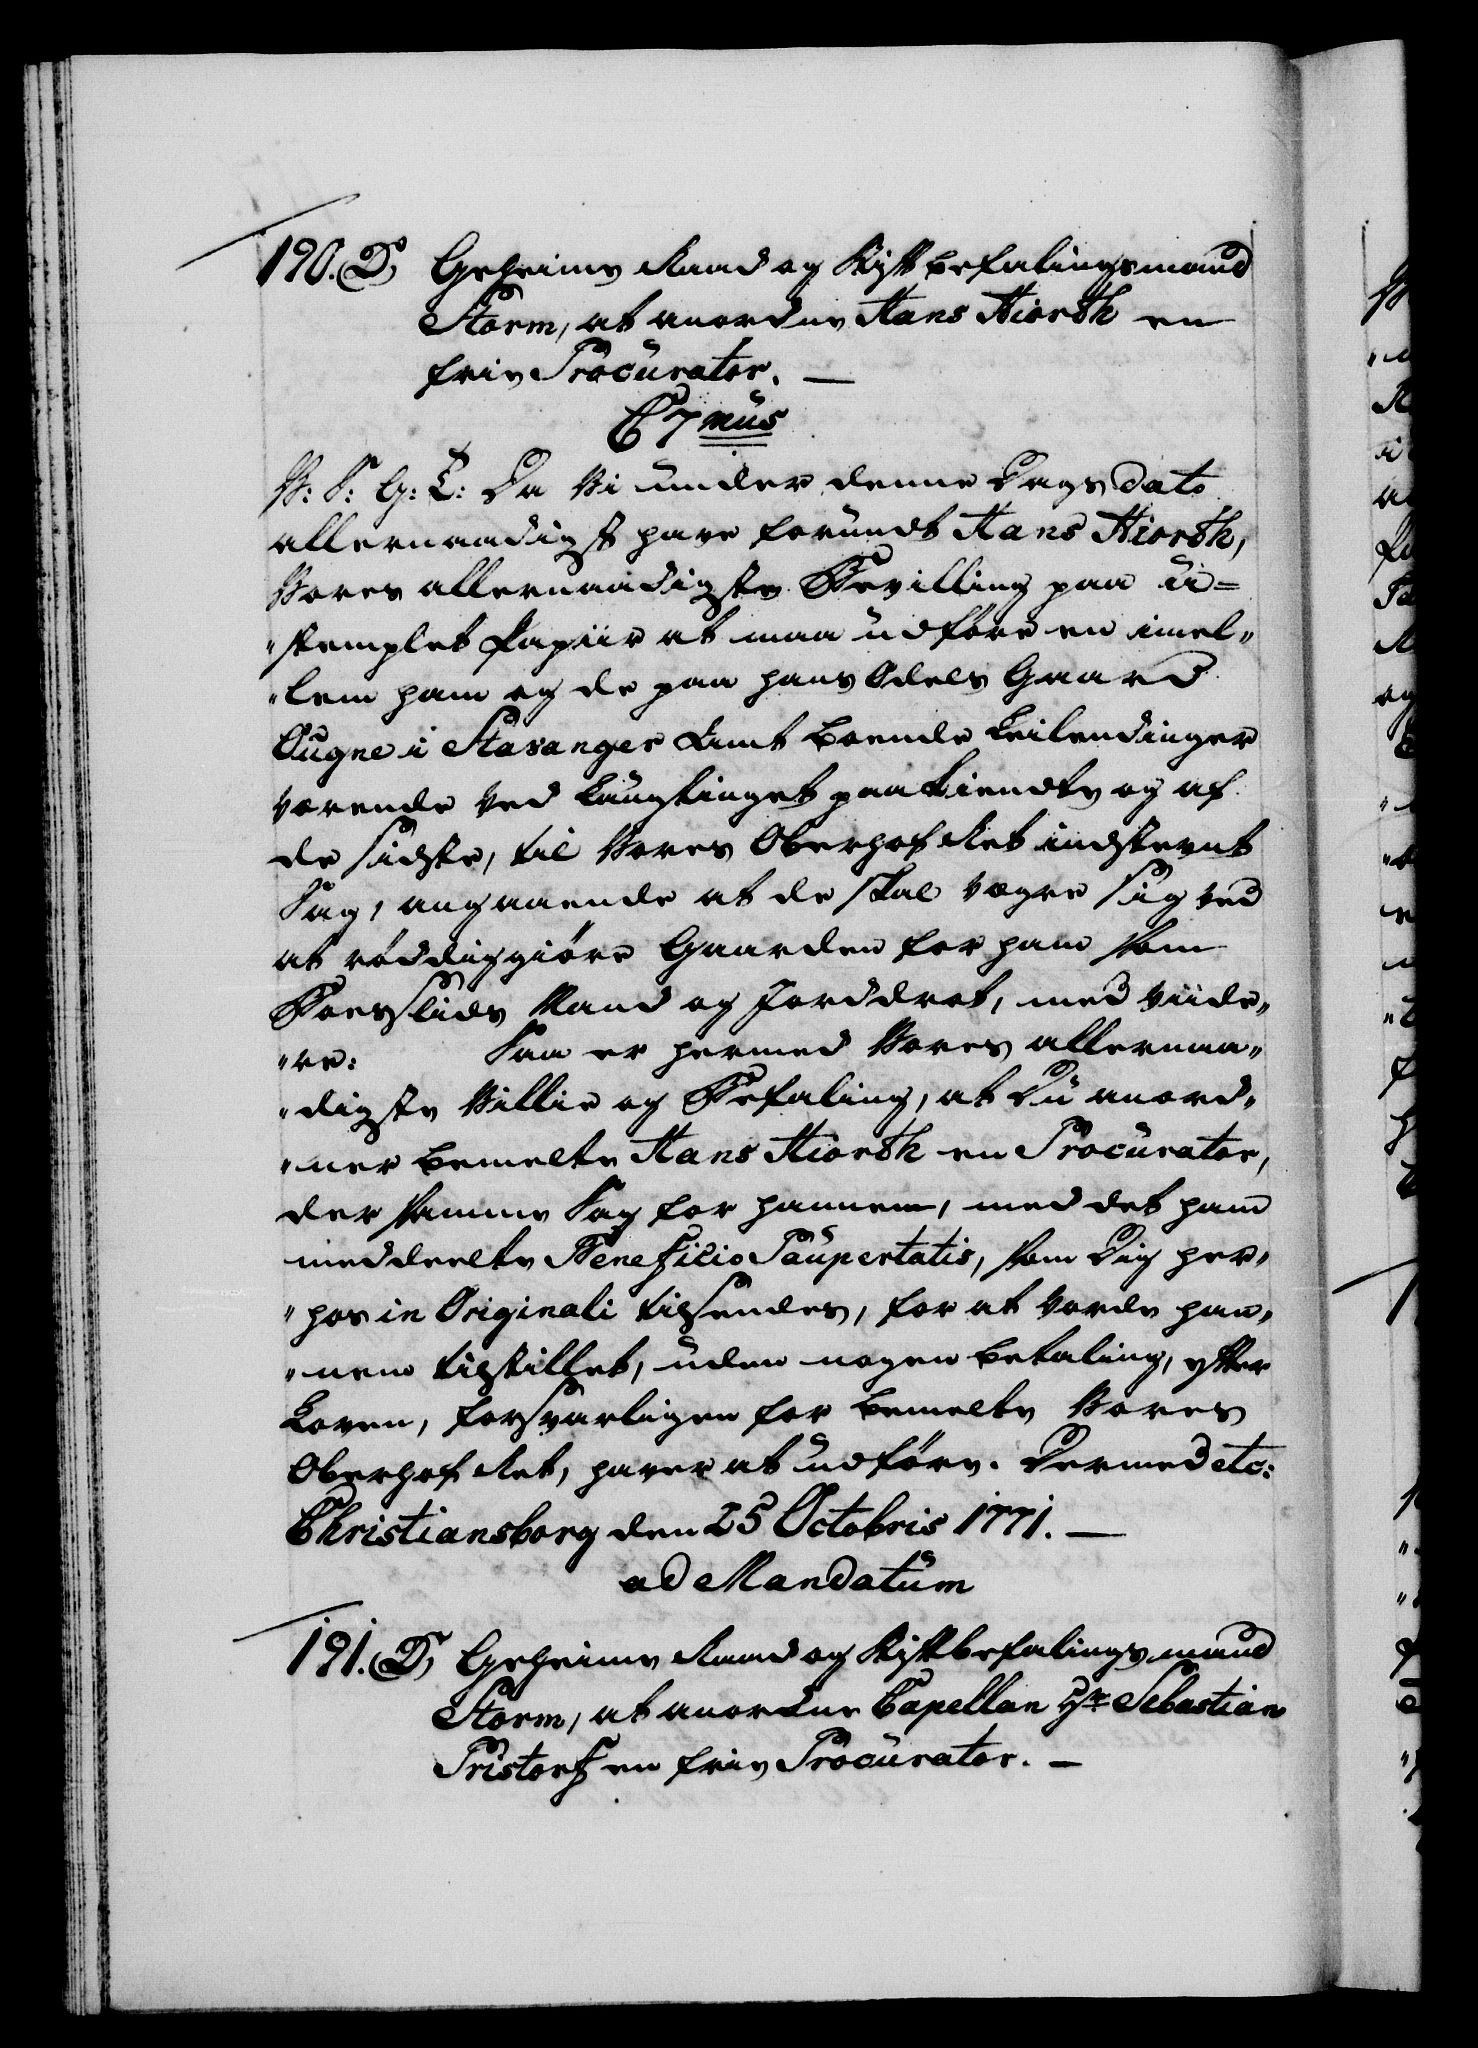 190. D Geheime Raad og Stiftbefalingsmand
Storm, at anordne Hans Hiorth en
frie Procurator. —
C7mus
V: S: G: T: Da Vi under denne Dags Dato
allernaadigst have forundt Hans Hiorth,
Vores allernaadigste Bevilling paa u=
"stemplet Papiir at maa udføre en imel„
„lem ham og de paa hans Odels Gaard
Øugne i Stavanger Amt boende Leilendinger
værende ved Laugtinget paakiendte og af
de sidste, til Vores Oberhof Ret indstevnt
Sag, angaaende at de skal vægre sig ved
at røddiggiøre Gaarden for ham som
Boesslids Mand og Jorddrot, med viide„
„re: Saa er hermed Vores allernaa„
„digste Villie og Befaling, at Du anord„
„ner bemelte Hans Hiorth en Procurator,
der samme Sag for hannem, med det ham
meddeelte Beneficio Paupertatis, som Dig her„
„hos in Originali tilsendes, for at vorde han„
„nem tilstillet, uden nogen betaling, efter
Loven, forsvarligen for bemelte Vores
Oberhof Ret, haver at udføre. Dermed etc:
Christiansborg den 25 Octobris 1771. —
ad Mandatum
191. D Geheime Raad og Stiftbefalingsmand
Storm, at anordne Capellan Hr Sebastian
Pristorf en frie Procurator. —